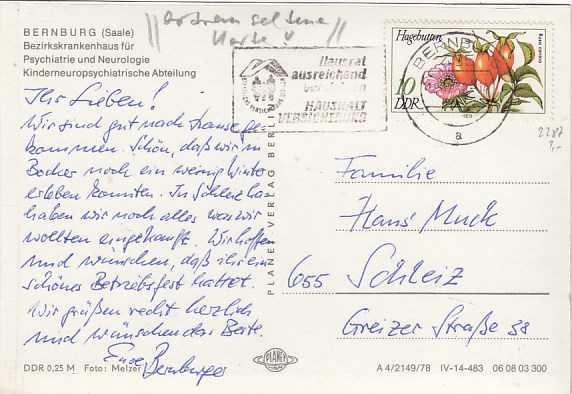 extrem seltene
Karte !
BERNBURG (Saale)
Bezirkskrankenhaus für
Psychiatrie und Neurologie
Kinderneuropsychiatrische Abteilung
Hausrat
ausreichend
versichern
HAUSHALT
VERSICHERUNG
BERNBURG
a
Hagebutten
Rosa canina
10
DDR
2287
Ihr Lieben!
Wir sind gut nach Hause ge-
kommen. Schön, daß wir in
noch ein wenig Winter
erleben konnten. In Schleiz
haben wir noch alles was wir
wollten eingekauft. Wir hoffen
und wünschen, daß ihr ein
schönes Betriebsfest hattet.
Wir grüßen recht herzlich
und wünschen das Beste.
Eure Bernburger
Familie
Hans Muck
655 Schleiz
Greizer Straße 38
PLANET VERLAG BERLIN
PLANET
DDR 0,25 M Foto: Melzer
A 4/2149/78 IV-14-483 06 08 03 300